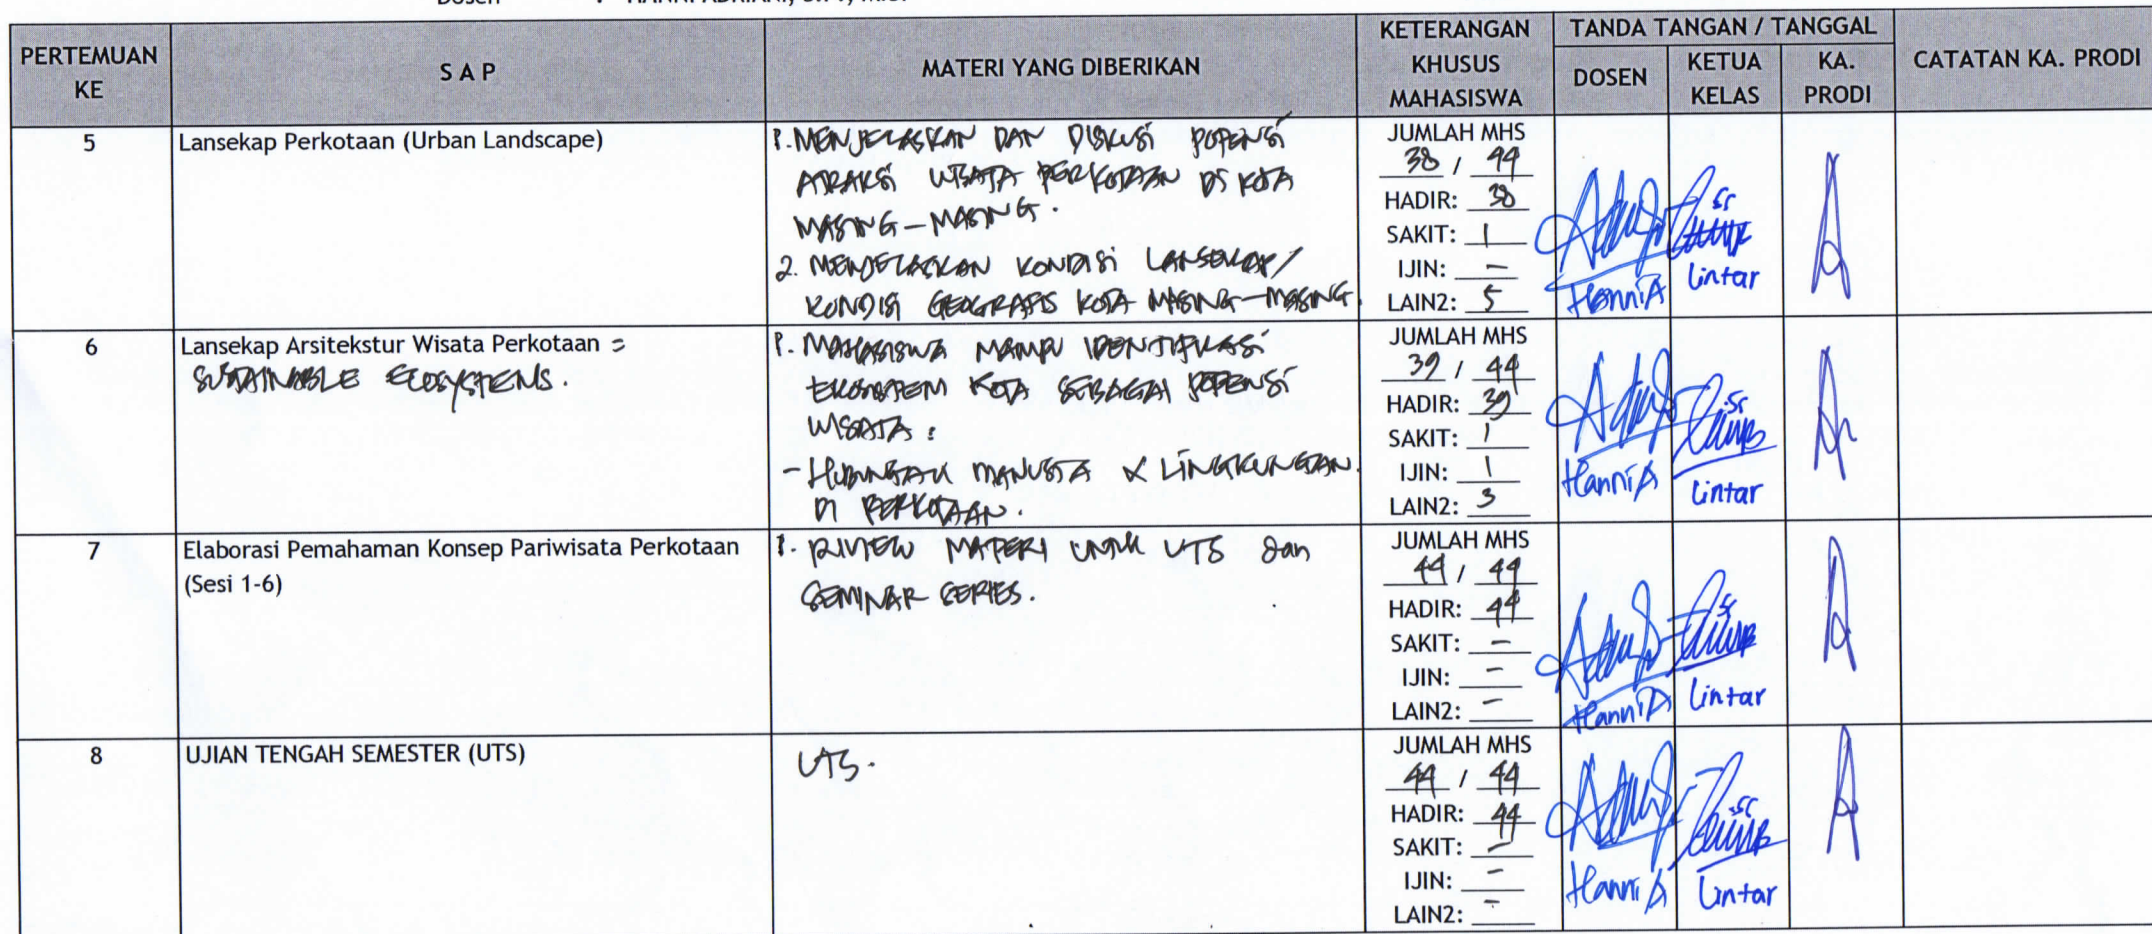 PERTEMUAN KE
S A P
MATERI YANG DIBERIKAN
KETERANGAN KHUSUS MAHASISWA
TANDA TANGAN / TANGGAL
DOSEN
KETUA KELAS
KA. PRODI
CATATAN KA. PRODI
5
Lansekap Perkotaan (Urban Landscape)
1. MENJELASKAN DAN DISKUSI POTENSI
ATRAKSI WISATA PERKOTAAN DI KOTA
MASING-MASING.
2. MENJELASKAN KONDISI LANSEKAP/
KONDISI GEOGRAFIS KOTA MASING-MASING.
JUMLAH MHS
38 / 44
HADIR: 38
SAKIT: 1
IJIN: -
LAIN2: 5
Hanni A
Lintar
6
Lansekap Arsitekstur Wisata Perkotaan =
SUSTAINABLE ECOSYSTEMS.
1. MAHASISWA MAMPU IDENTIFIKASI
EKOSISTEM KOTA SEBAGAI POTENSI
WISATA:
- HUBUNGAN MANUSIA & LINGKUNGAN.
DI PERKOTAAN.
JUMLAH MHS
39 / 44
HADIR: 39
SAKIT: 1
IJIN: 1
LAIN2: 3
Hanni A
Lintar
7
Elaborasi Pemahaman Konsep Pariwisata Perkotaan
(Sesi 1-6)
1. RIVIEW MATERI UNTUK UTS dan
SEMINAR SERIES.
JUMLAH MHS
44 / 44
HADIR: 44
SAKIT: -
IJIN: -
LAIN2: -
Hanni A
Lintar
8
UJIAN TENGAH SEMESTER (UTS)
UTS.
JUMLAH MHS
44 / 44
HADIR: 44
SAKIT: -
IJIN: -
LAIN2: -
Hanni A
Lintar